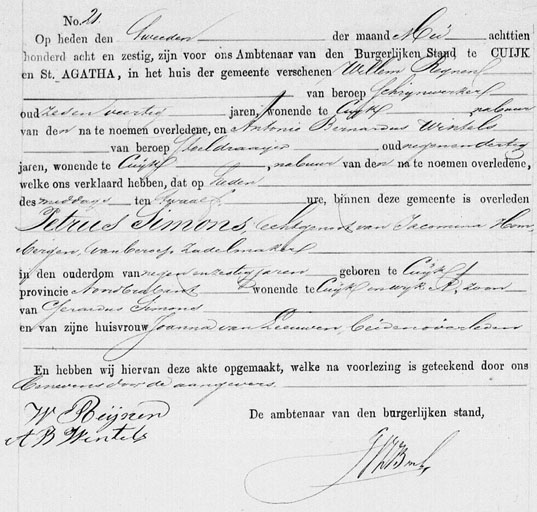 No. 21.
Op heden den Tweeden der maand Mei achttien
honderd acht en zestig, zijn voor ons Ambtenaar van den Burgerlijken Stand te CUIJK
en St. AGATHA, in het huis der gemeente verschenen Willem Reynen
van beroep Schrijnwerker
oud zeven veertig jaren, wonende te Cuijk nabuur
van den na te noemen overledene, en Antonie Bernardus Wintels
van beroep oud negenendertig
jaren, wonende te Cuijk, nabuur van den na te noemen overledene,
welke ons verklaard hebben, dat op heden
des middags ten twaalf ure, binnen deze gemeente is overleden
Petrus Simons, echtgenoot van Jacomina Hom-
bergen, van beroep Zadelmaker
in den ouderdom van negen en zestig jaren geboren te Cuijk
provincie Noordbrabant wonende te Cuijk en wijk A, zoon
van Gerardus Simons
en van zijne huisvrouw Joanna van Leeuwen, beiden overleden
En hebben wij hiervan deze akte opgemaakt, welke na voorlezing is geteekend door ons
benevens door de aangevers.
W Reijnen
A B Wintels
De ambtenaar van den burgerlijken stand,